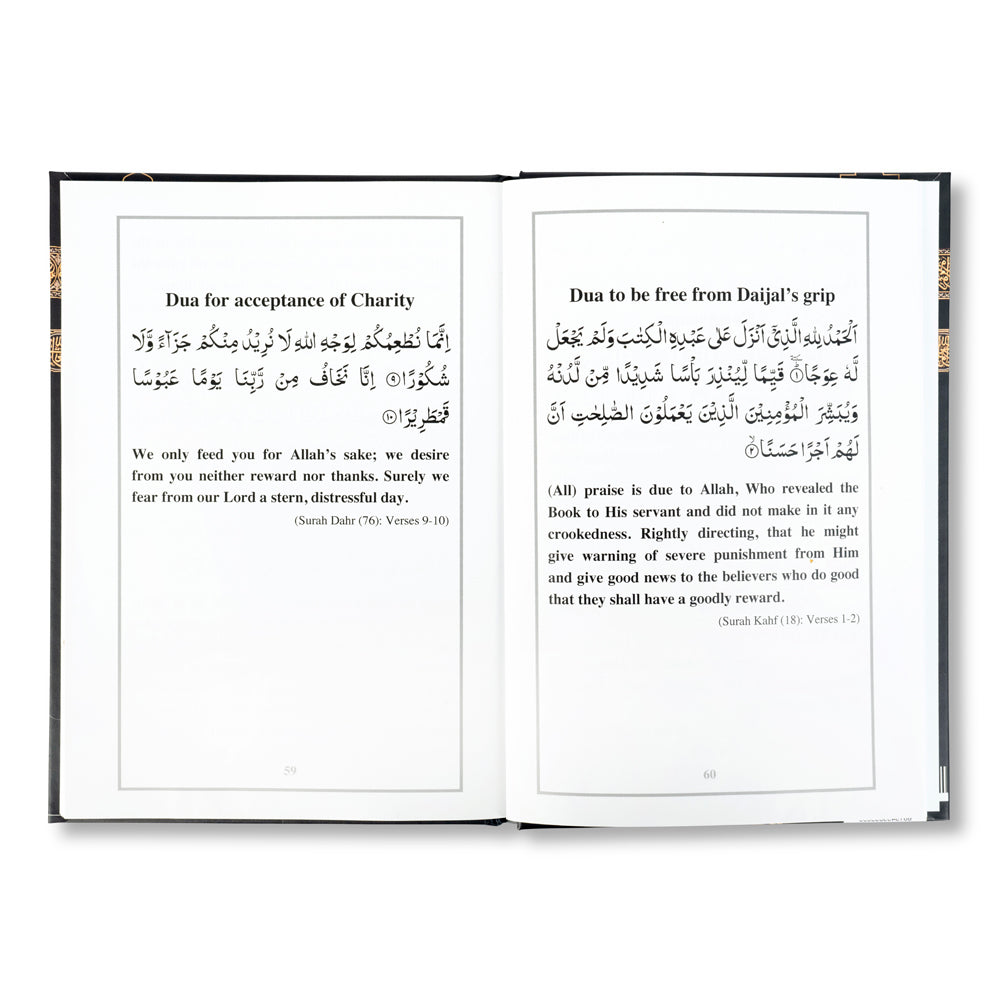 Dua for acceptance of Charity
اِنَّمَا نُطْعِمُكُمْ لِوَجْهِ اللهِ لَا نُرِيْدُ مِنْكُمْ جَزَآءً وَّلَا
شُكُوْرًا ۹ اِنَّا نَخَافُ مِنْ رَّبِّنَا يَوْمًا عَبُوْسًا
قَمْطَرِيْرًا ۱۰
We only feed you for Allah's sake; we desire
from you neither reward nor thanks. Surely we
fear from our Lord a stern, distressful day.
(Surah Dahr (76): Verses 9-10)
59
Dua to be free from Daijal's grip
اَلْحَمْدُ لِلهِ الَّذِيْٓ اَنْزَلَ عَلٰى عَبْدِهِ الْكِتٰبَ وَلَمْ يَجْعَلْ
لَّهٗ عِوَجًا ۱ قَيِّمًا لِّيُنْذِرَ بَاْسًا شَدِيْدًا مِّنْ لَّدُنْهُ
وَيُبَشِّرَ الْمُؤْمِنِيْنَ الَّذِيْنَ يَعْمَلُوْنَ الصّٰلِحٰتِ اَنَّ
لَهُمْ اَجْرًا حَسَنًا ۲
(All) praise is due to Allah, Who revealed the
Book to His servant and did not make in it any
crookedness. Rightly directing, that he might
give warning of severe punishment from Him
and give good news to the believers who do good
that they shall have a goodly reward.
(Surah Kahf (18): Verses 1-2)
60